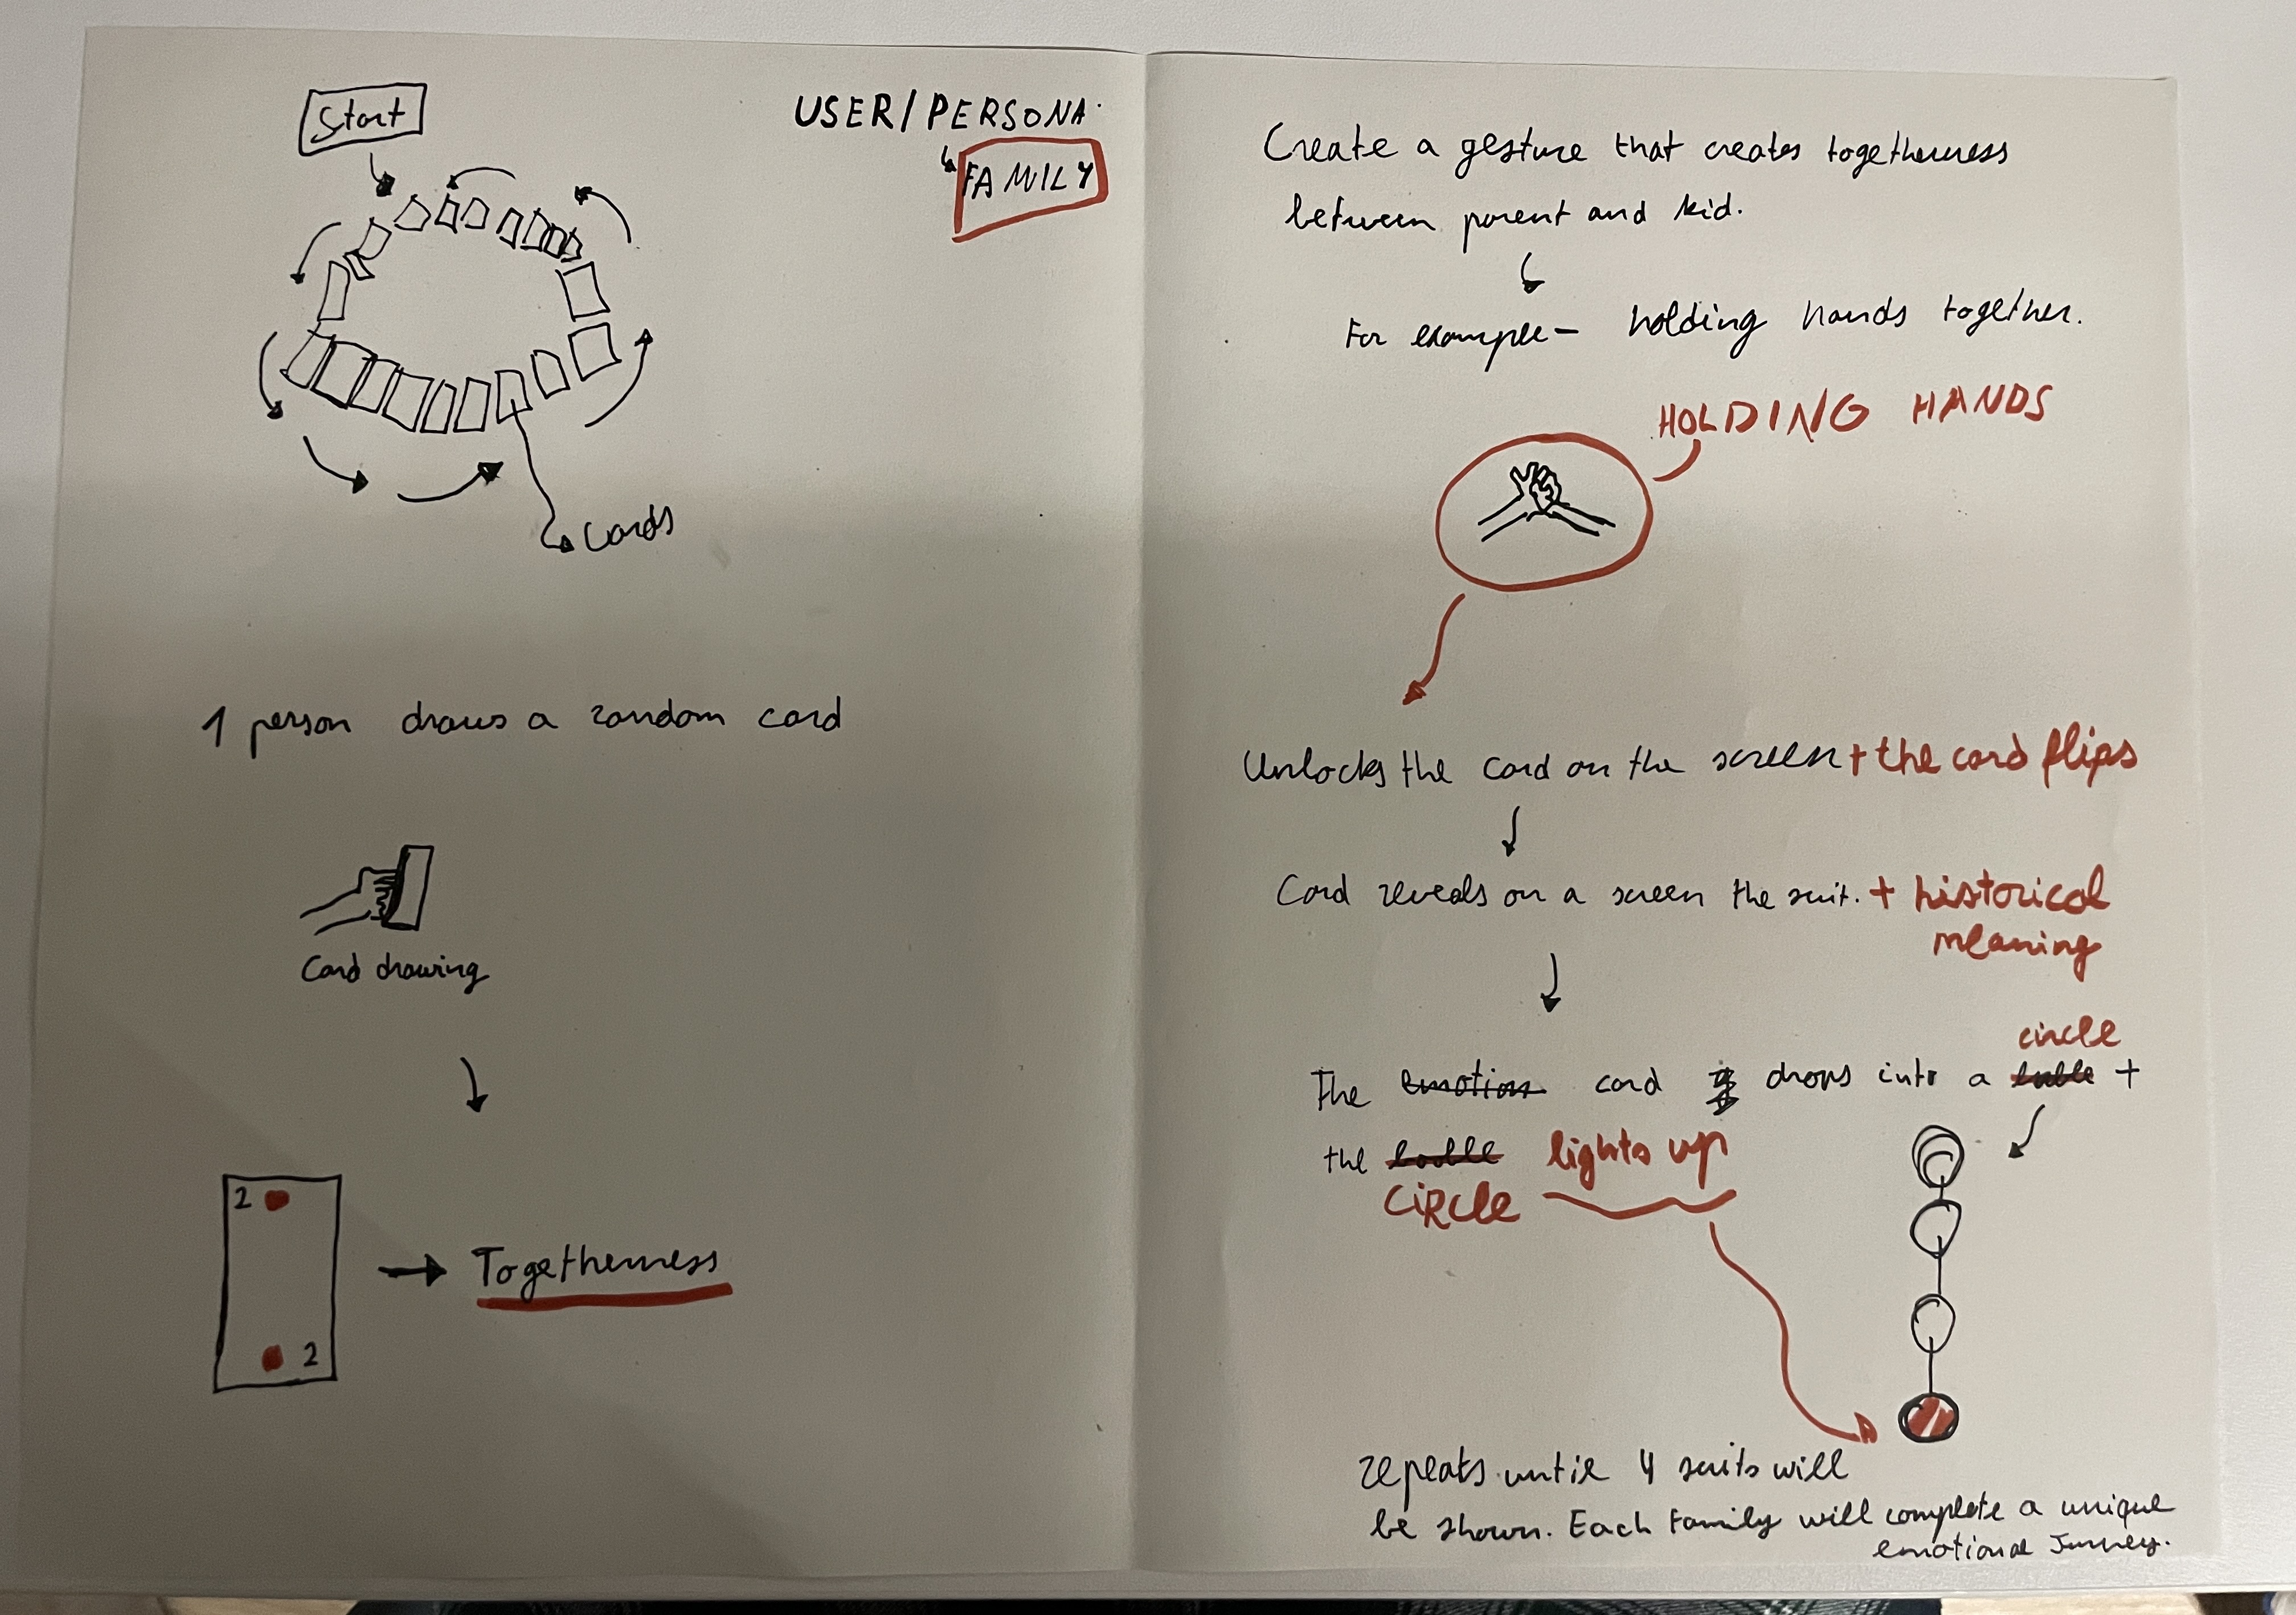 Start
USER/PERSONA
FAMILY
Cards
1 person draws a random card
Card drawing
2
2
Togetherness
Create a gesture that creates togetherness
between parent and kid.
For example – holding hands together.
HOLDING HANDS
Unlocks the card on the screen + the card flips
Card reveals on a screen the suit. + historical
meaning
circle
The emotion card drops into a +
the lights up
CIRCLE
repeats until 4 suits will
be shown. Each family will complete a unique
emotional Journey.